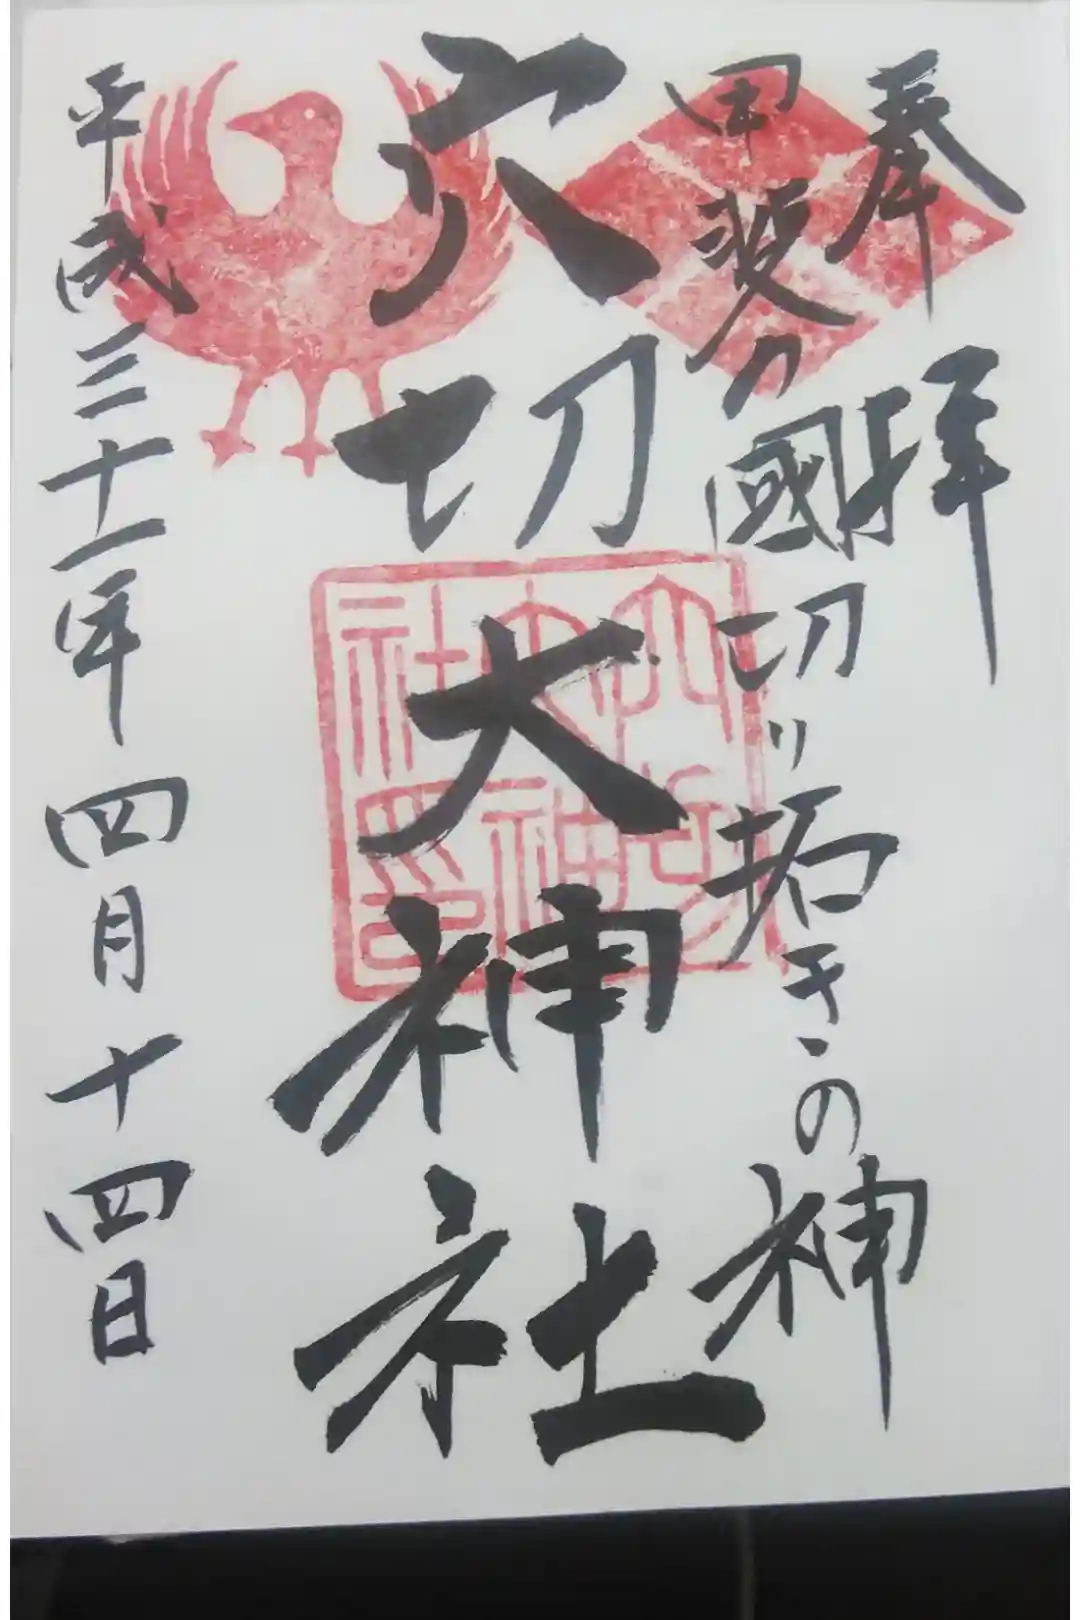 奉拝
甲斐乃國切り拓きの神
穴切大神社
穴切大神社印
平成三十一年四月十四日